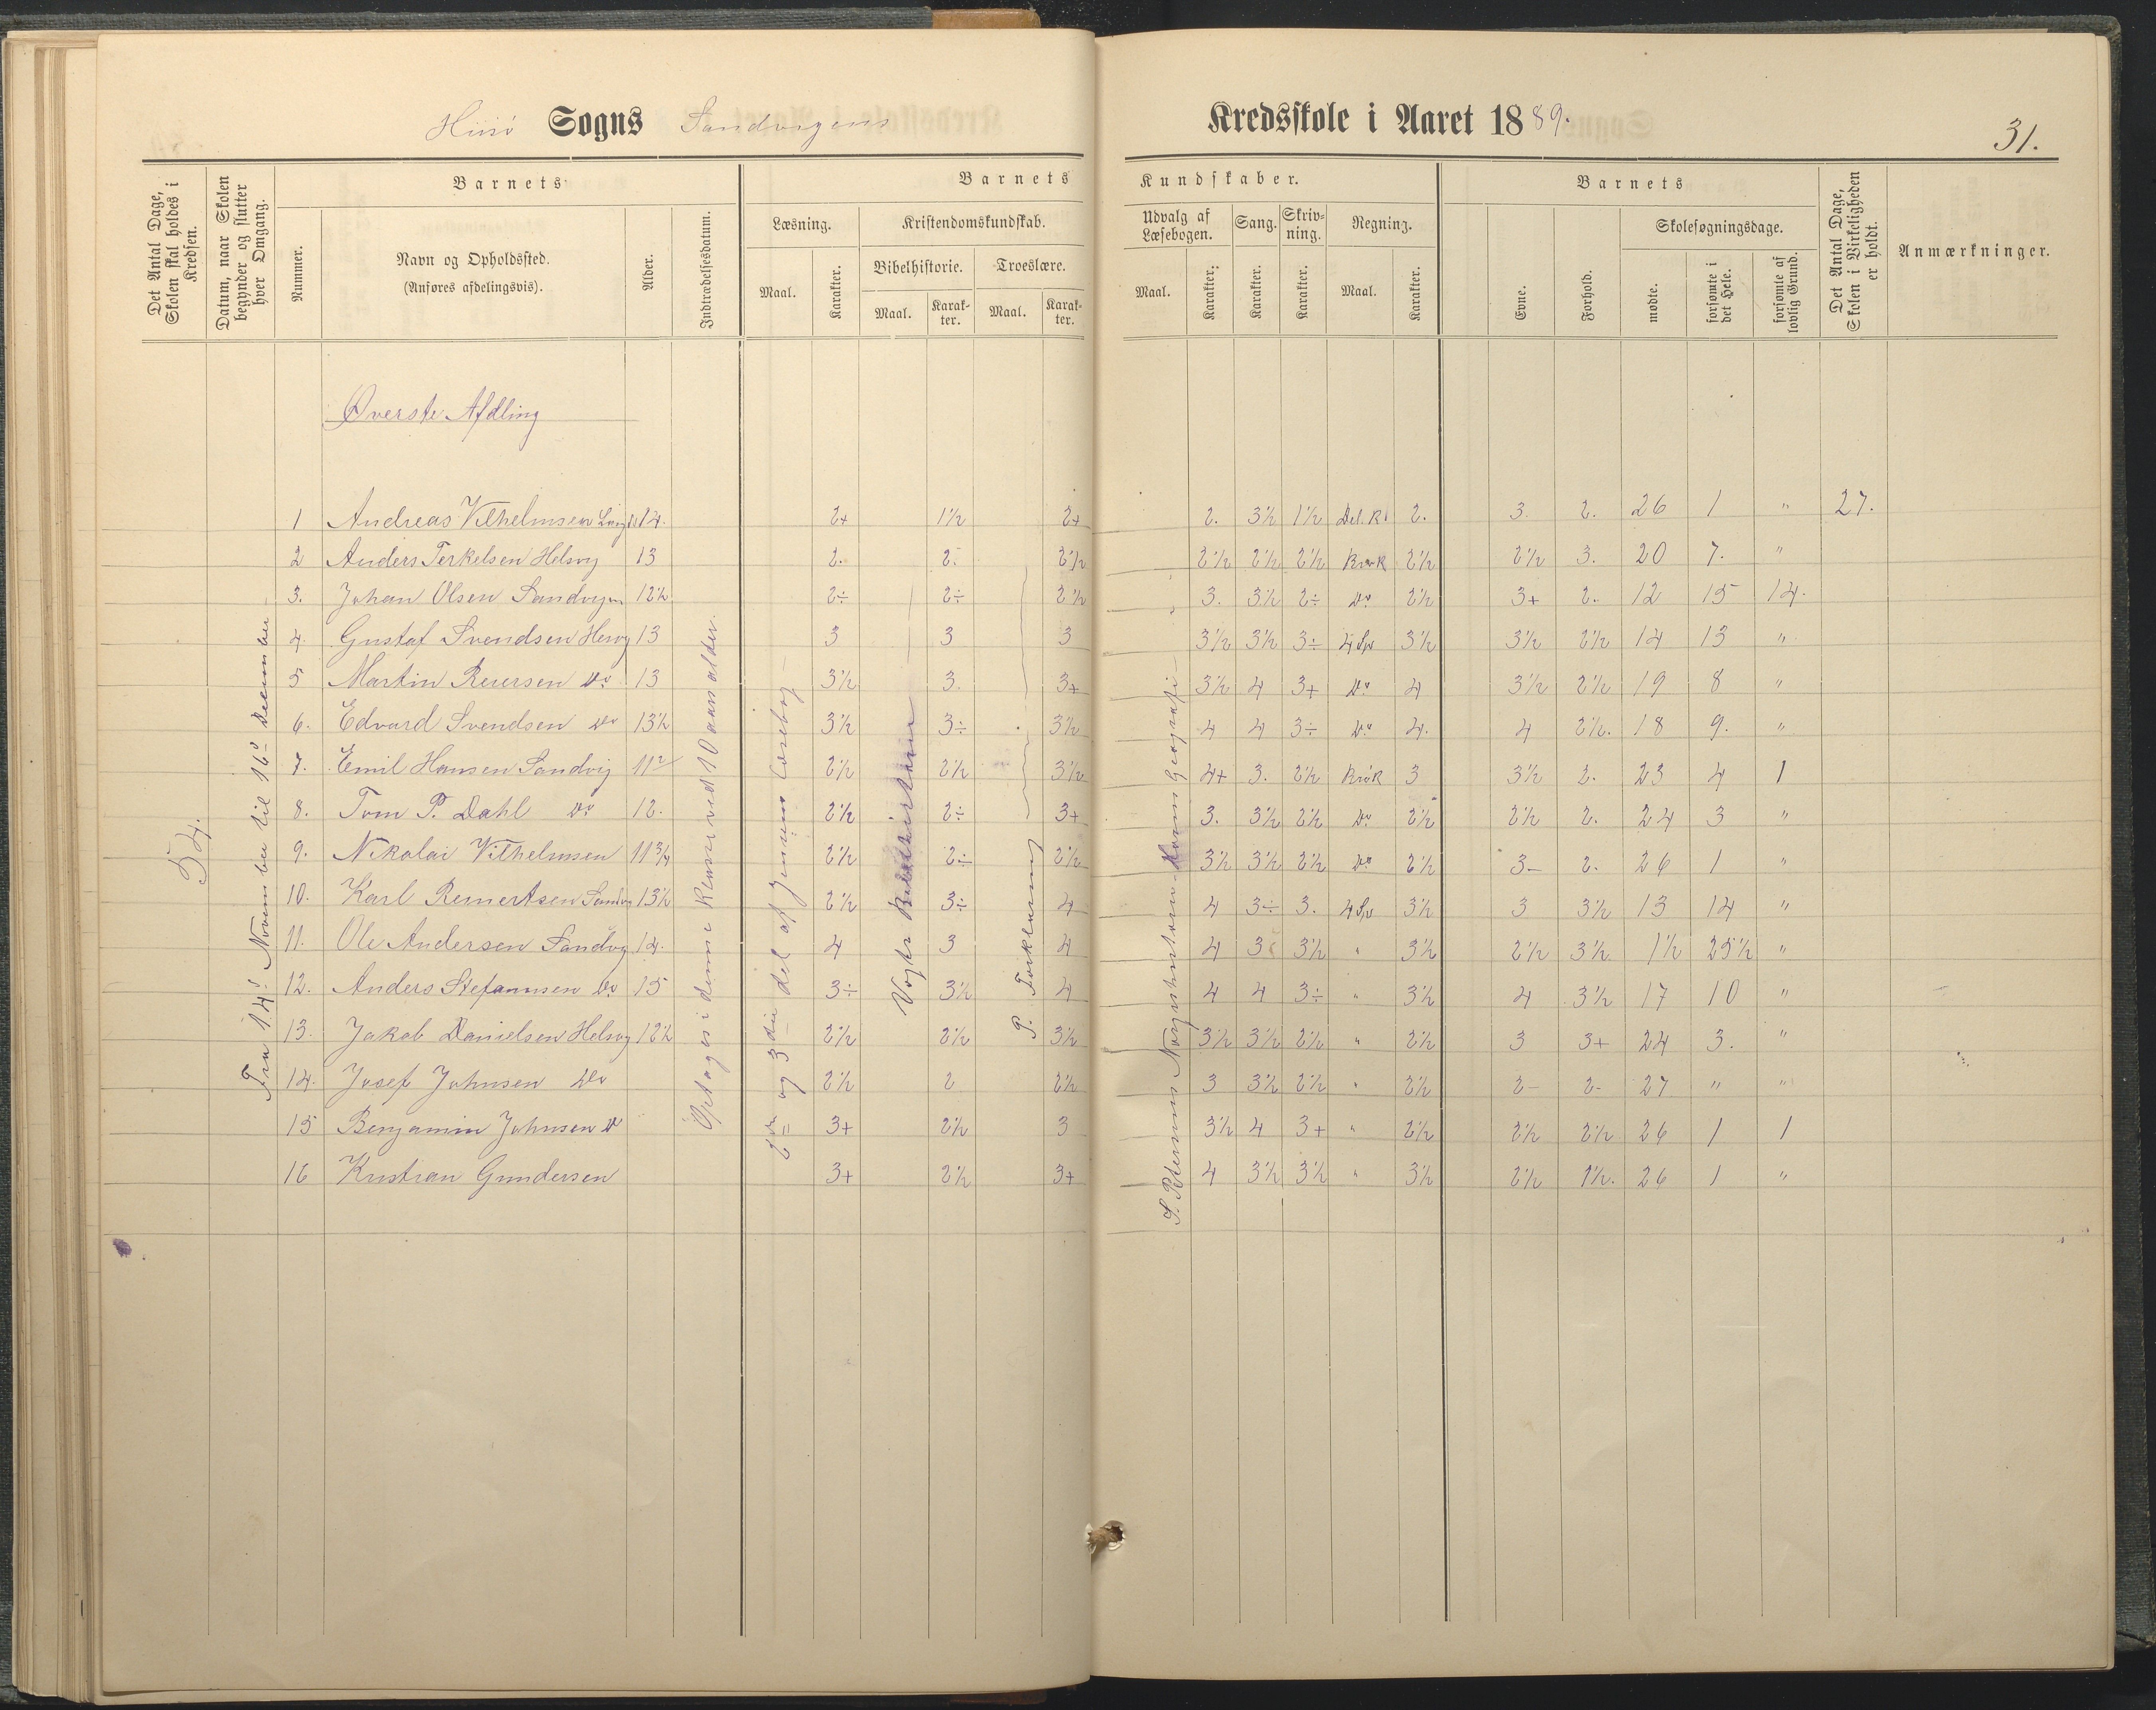 Hisø Sogns Sandvigens Kredsskole i Aaret 1889.
31.
Det Antal Dage, Skolen skal holdes i Kredsen.
Datum, naar Skolen begynder og slutter hver Omgang.
Barnets
Nummer.
Navn og Opholdssted.
(Anføres afdelingsvis).
Alder.
Indtrædelsesdatum.
Barnets Kundskaber.
Læsning.
Maal.
Karakter.
Kristendomskundskab.
Bibelhistorie.
Maal.
Karakter.
Troeslære.
Maal.
Karakter.
Udvalg af Læsebogen.
Maal.
Karakter.
Sang.
Karakter.
Skrivning.
Karakter.
Regning.
Maal.
Karakter.
Barnets
Evne.
Forhold.
Skolesøgningsdage.
mødte.
forsømte i det Hele.
forsømte af lovlig Grund.
Det Antal Dage, Skolen i Virkeligheden er holdt.
Anmærkninger.
Øverste Afdling
54.
Fra 14de November til 16de December
Optages i denne Klasse ved 10 aars alder.
2den og 3die del af Jensens Læsebog
Vogts Bibelhistorie
P. Forklaring
1 Andreas Vilhelmsen 14. 2+ 1½ 2+ 2. 3½ 1½ 2. 3. 2. 26 1 " 27.
2 Anders Terkelsen Helsvg 13 2. 2. 2½ 2½ 2½ 2½ Brøk 2½ 2½ 3. 20 7. "
3. Johan Olsen Sandvigen 12½ 2÷ 2÷ 2½ 3. 3½ 2÷ Do 2½ 3+ 2. 12 15 14.
4. Gustaf Svendsen 13 3 3 3 3½ 3½ 3÷ 4 Sp 3½ 3½ 2½ 14 13 "
5 Martin Reiersen Do 13 3½ 3. 3+ 3½ 4 3+ Do 4 3½ 2½ 19 8 "
6. Edvard Svendsen Do 13½ 3½ 3÷ 3½ 4 4 3÷ Do 4. 4 2½. 18 9. "
7. Emil Hansen Sandvig 11½ 2½ 2½ 3½ 4+ 3. 2½ Brøk 3 3½ 2. 23 4 1
8. Tom P. Dahl Do 12. 2½ 2÷ 3+ 3. 3½ 2½ Do 2½ 2½ 2. 24 3 "
9. Nikolai Vilhelmsen 11¾ 2½ 2÷ 2½ 3½ 3½ 2½ Do 2½ 3- 2. 26 1 "
10. Karl Reinertsen Sandvg 13½ 2½ 3÷ 4 4 3÷ 3. 4 Sp 3½ 3 3½ 13 14 "
11. Ole Andersen Sandvg 14. 4 3 4 4 3 3½ " 3½ 2½ 3½ 1½ 25½ "
12. Anders Stefannsen Do 15 3÷ 3½ 4 4 4 3÷ " 3½ 4 3½ 17 10 "
13. Jakob Danielsen Helsvg 12½ 2½ 2½ 3½ 3½ 3½ 2½ " 2½ 3 3+ 24 3. "
14. Josef Johnsen Do 2½ 2 2½ 3 3½ 2½ " 2½ 2- 2- 27 " "
15 Benjamin Johnsen Do 3+ 2½ 3 3½ 4 3+ " 2½ 2½ 2½ 26 1 1
16 Kristian Gundersen 3+ 2½ 3+ 4 3½ 3½ " 3½ 2½ 1½. 26 1 "